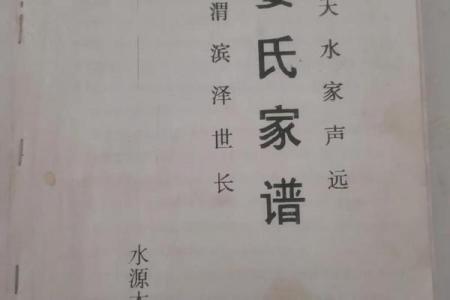 天水家声远
姜氏家谱
渭滨泽世长
水源木